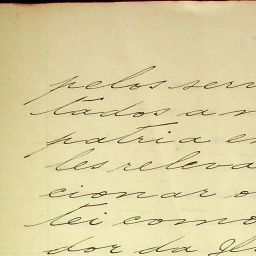 pelos serv
tados a n
patria e
les releva
cionar o
tei como
dor da Il